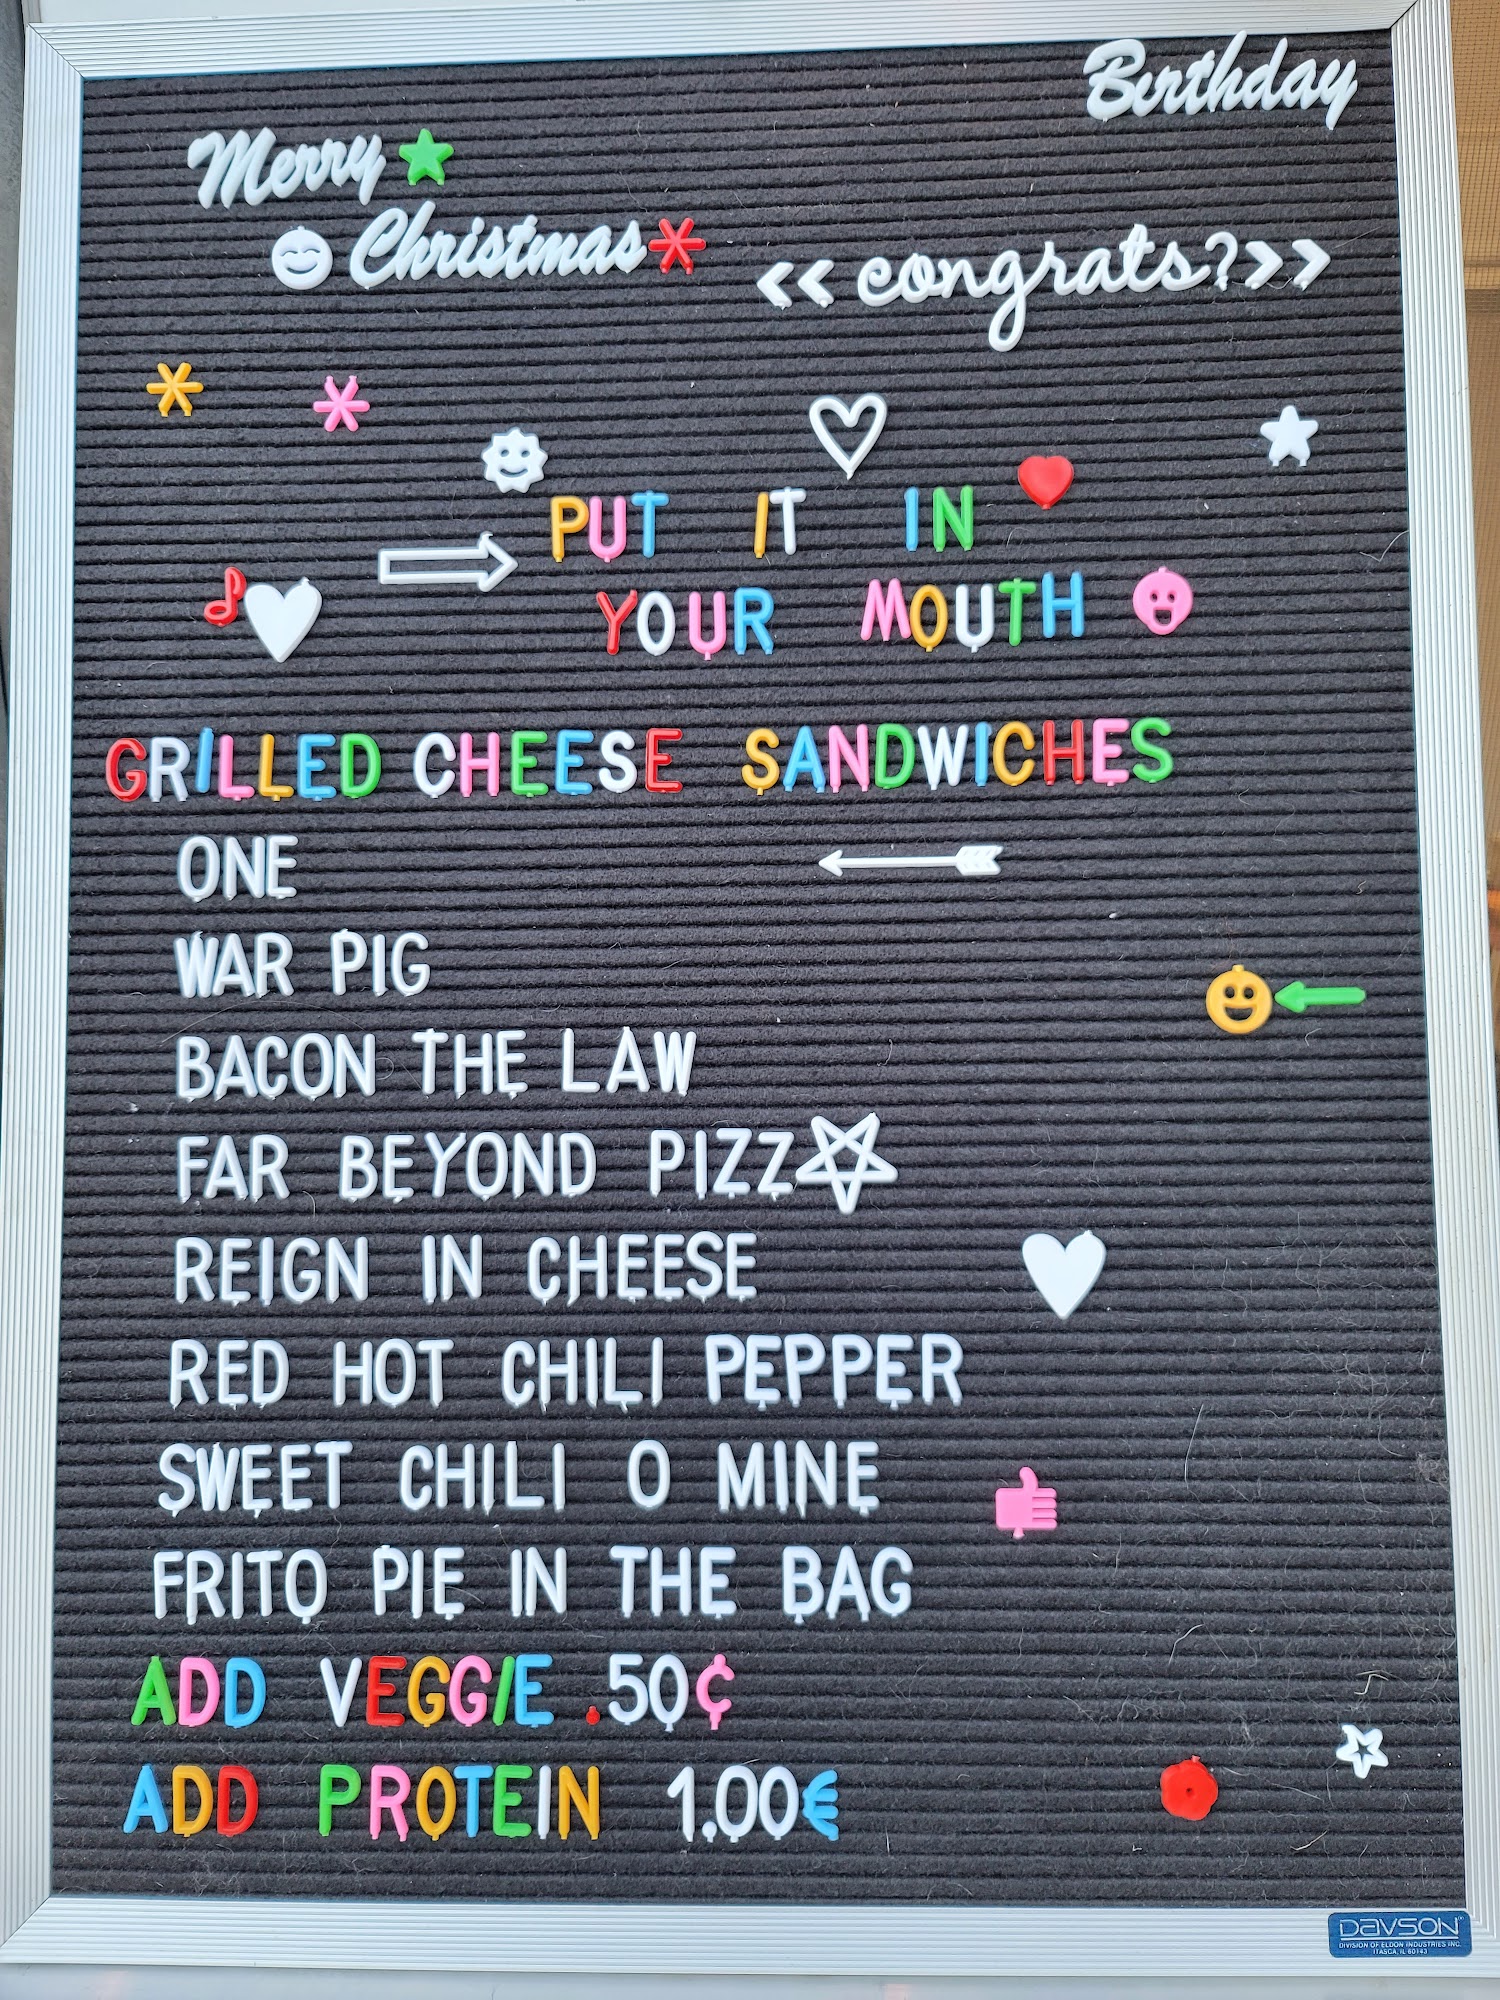 Birthday
Merry
Christmas
<< congrats? >>
PUT IT IN
YOUR MOUTH
GRILLED CHEESE SANDWICHES
ONE
WAR PIG
BACON THE LAW
FAR BEYOND PIZZ⛧
REIGN IN CHEESE
RED HOT CHILI PEPPER
SWEET CHILI O MINE
FRITO PIE IN THE BAG
ADD VEGGIE .50¢
ADD PROTEIN 1.00€
DAVSON
DIVISION OF ELDON INDUSTRIES INC.
ITASCA, IL 60143